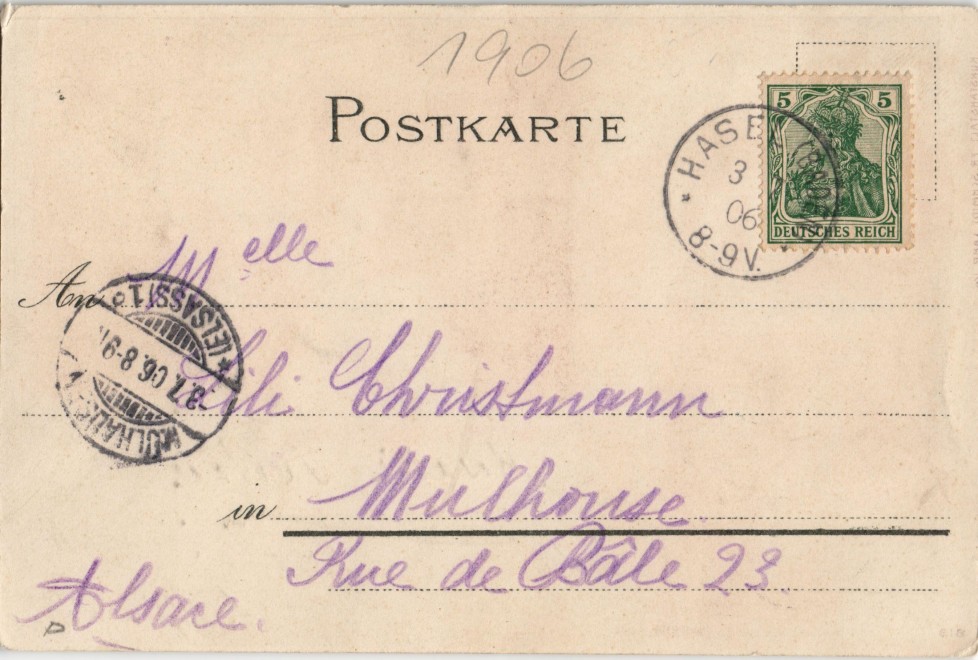 1906
POSTKARTE
5 5
DEUTSCHES REICH
HASE
3
06
8-9V.
An Melle
(ELSASS) 1
-3.7.06.8-9
MÜLHAUSEN
Lili Christmann
in Mulhouse.
Rue de Bâle 23.
Alsace.